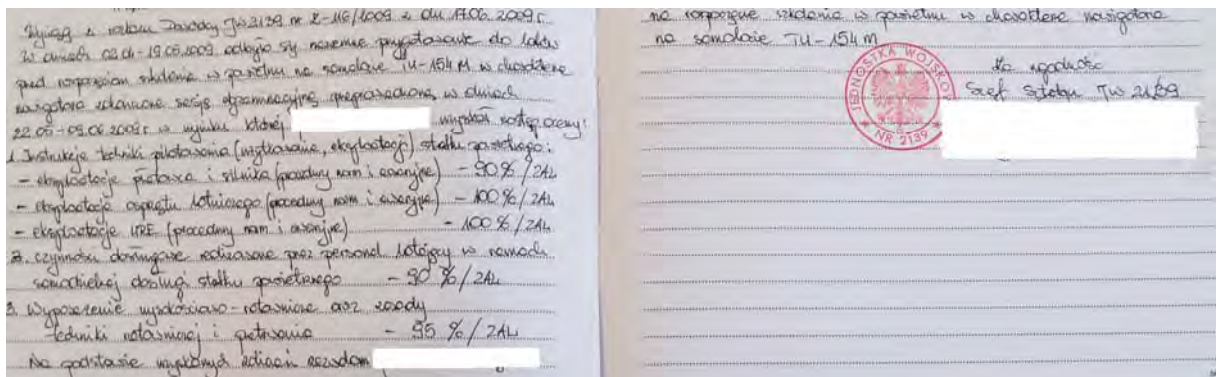 Wyciąg z rozkazu Dowódcy JW 2139 nr Z-116/2009 z dn. 17.06.2009 r.
W dniach 02.01-19.05.2009 odbyło się naziemne przygotowanie do lotów
przed rozpoczęciem szkolenia w powietrzu na samolocie TU-154 M w charakterze
nawigatora zakończone sesją egzaminacyjną przeprowadzoną w dniach
22.05-09.06.2009 r. w wyniku której uzyskał następ. oceny:
1. Instrukcje techniki pilotowania (użytkowania, eksploatacji) statku powietrznego:
- eksploatacja płatowca i silnika (procedury norm i awaryjne) - 90% / ZAL
- eksploatacja osprzętu lotniczego (procedury norm i awaryjne) - 100% / ZAL
- eksploatacja URE (procedury norm i awaryjne) - 100% / ZAL
2. czynności obsługowe realizowane przez personel latający w ramach
samodzielnej obsługi statku powietrznego - 90 % / ZAL
3. Wyposażenie wysokościowo-ratownicze oraz zasady
techniki ratowniczej i przetrwania - 95 % / ZAL
Na podstawie uzyskanych zaliczeń zezwalam
na rozpoczęcie szkolenia w powietrzu w charakterze nawigatora
na samolocie TU-154 M
Za zgodność
Szef Sztabu JW 2139
JEDNOSTKA WOJSKOWA
NR 2139